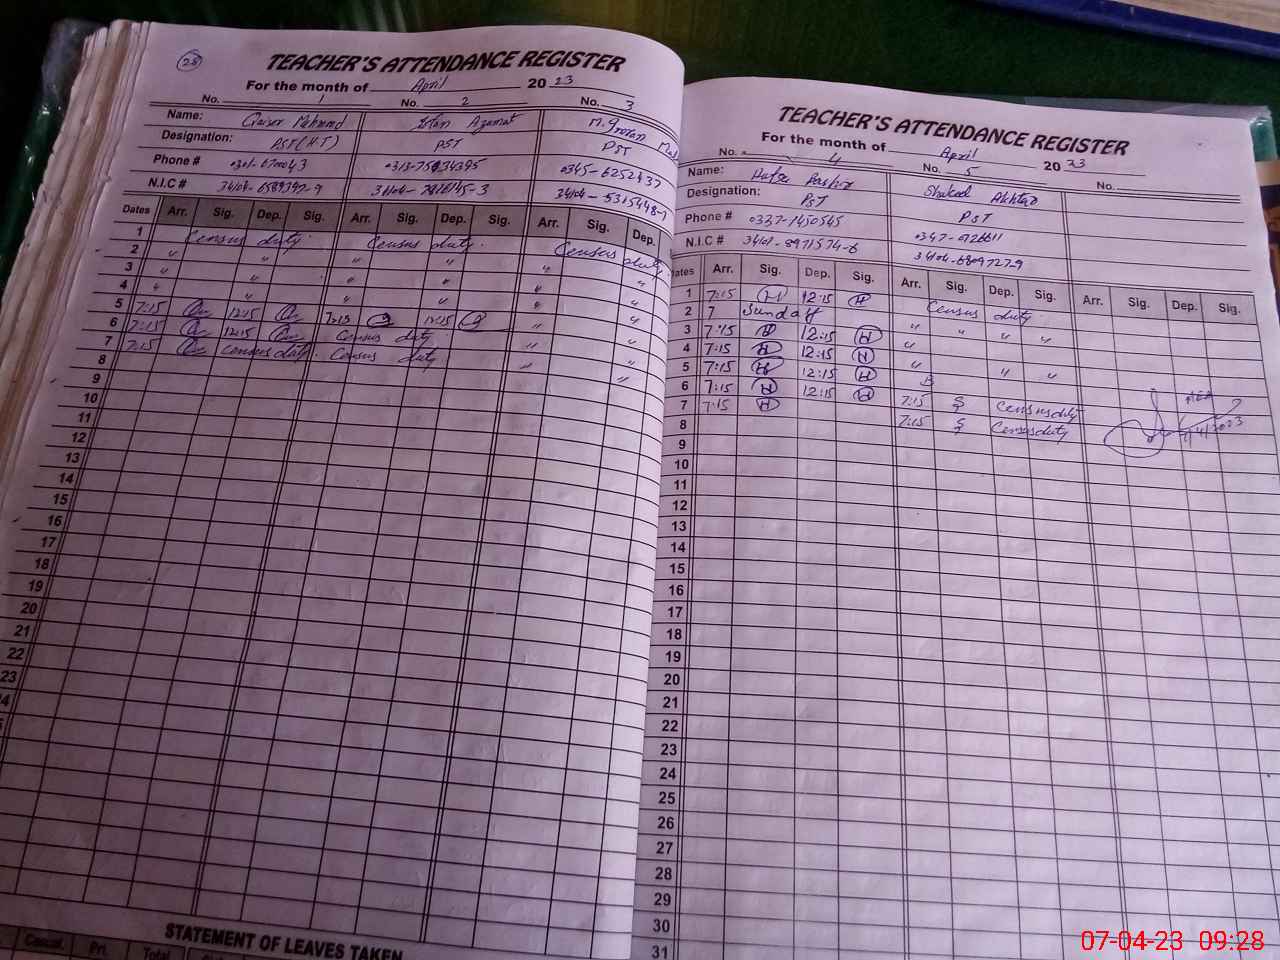 28
TEACHER'S ATTENDANCE REGISTER
For the month of April 2023
No. 1 No. 2 No. 3
Name: Qaiser Mehmood Azamat M.
Designation: PST(H.T) PST PST
Phone # 0345-6252437
N.I.C # 34104-6589392-9
Dates Arr. Sig. Dep. Sig. Arr. Sig. Dep. Sig. Arr. Sig. Dep.
1 Census duty. Census duty. Census duty.
2 " " " " " "
3 " " " " " "
4 " " " " " "
5 7:15 12:15 7:15 12:15 " "
6 7:15 12:15 Census duty " "
7 7:15 census duty. Census duty " "
8
9
10
11
12
13
14
15
16
17
18
19
20
21
22
23
STATEMENT OF LEAVES TAKEN
Casual. Prt. Total
TEACHER'S ATTENDANCE REGISTER
For the month of April 2023
No. 4 No. 5 No.
Name: Shakeel Akhtar
Designation: PST PST
Phone # 0337-1450545
N.I.C # 34101-8971574-6
Dates Arr. Sig. Dep. Sig. Arr. Sig. Dep. Sig. Arr. Sig. Dep. Sig.
1 7:15 H 12:15 H Census duty
2 7 Sunday " " "
3 7:15 H 12:15 H "
4 7:15 H 12:15 H " " "
5 7:15 H 12:15 H
6 7:15 H 12:15 H 7:15 Census duty
7 7:15 H 7:15 Census duty
8
9
10
11
12
13
14
15
16
17
18
19
20
21
22
23
24
25
26
27
28
29
30
31
07-04-23 09:28